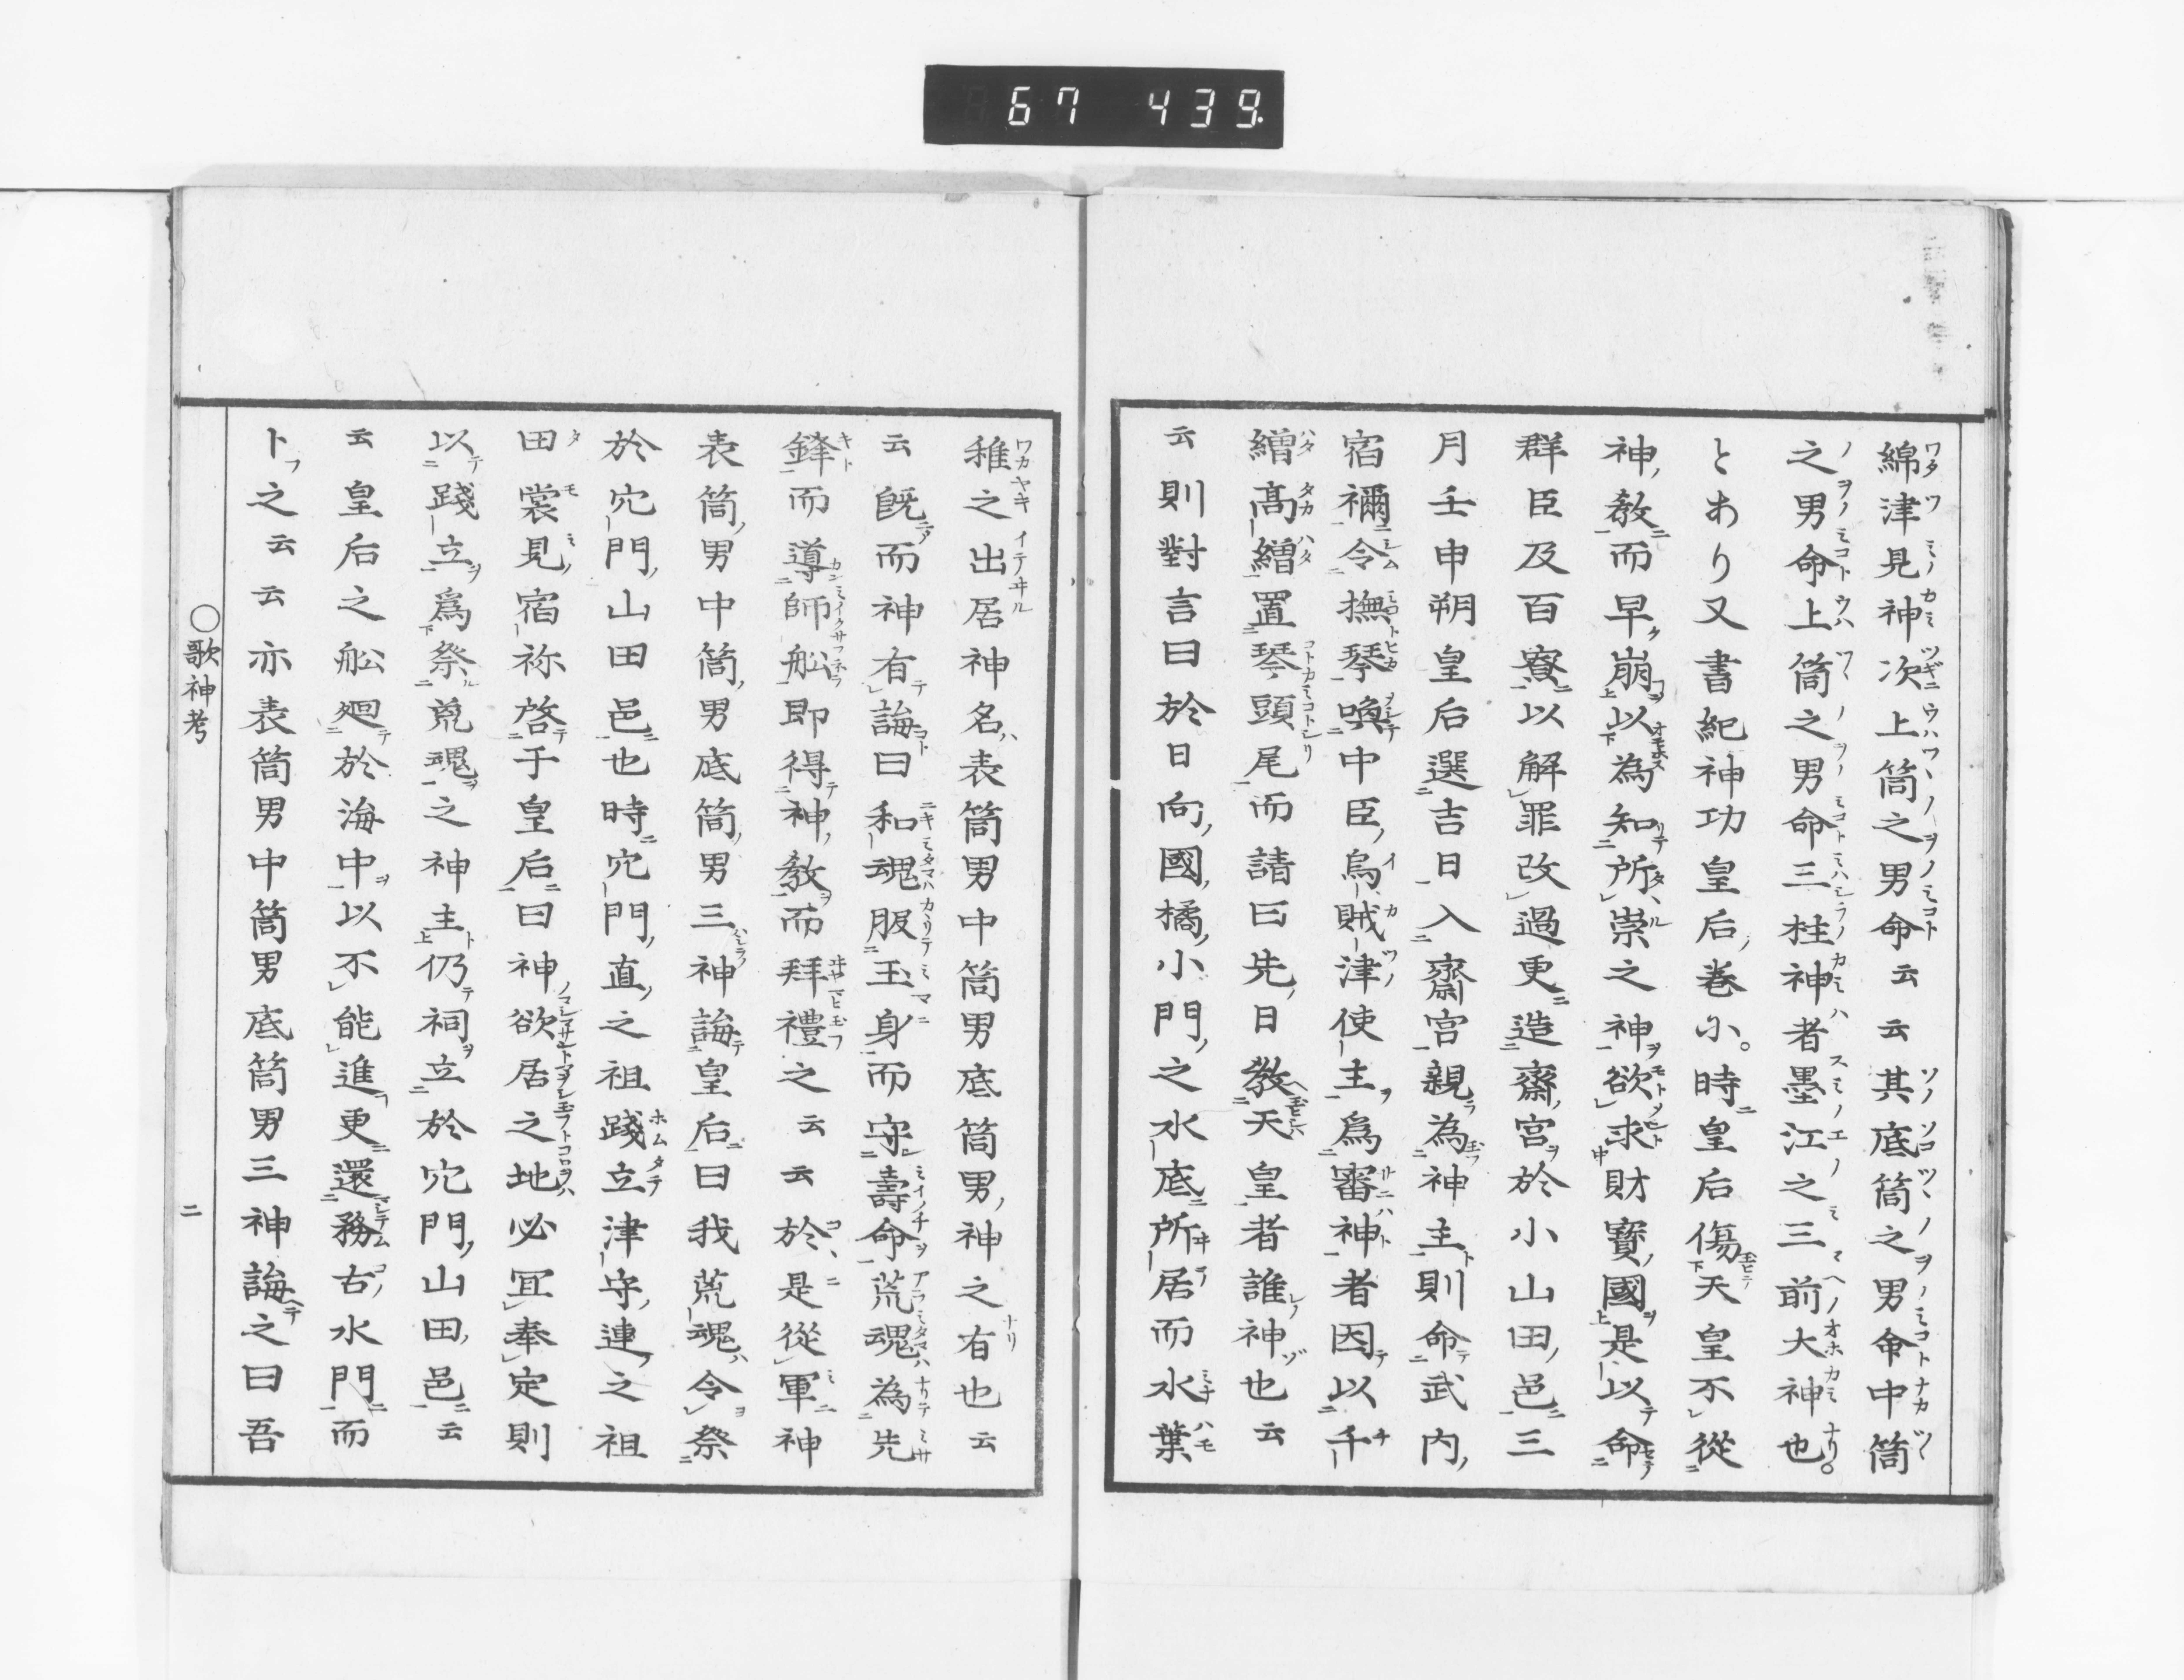 67 439.
綿津見神次上筒之男命云云其底筒之男命中筒
之男命上筒之男命三柱神者墨江之三前大神也。
とあり又書紀神功皇后ノ巻尓。時ニ皇后傷天皇不從
神ノ教而早ク崩以為知所崇之神欲求財寶ノ國是以命
群臣及百寮以解罪改過更造齋宮於小山田ノ邑三
月壬申朔皇后選吉日入齋宮親為神主則命武内ノ
宿禰令撫琴喚中臣ノ烏賊津使主為審神者因以千
繒髙繒置琴頭尾而請曰先ノ日教天皇者誰神也云
云則對言曰於日向ノ國ノ橘ノ小門ノ之水底所居而水葉
稚之出居神名ハ表筒男中筒男底筒男ノ神之有也云
云既而神有誨曰和魂服玉身而守壽命荒魂為先
鋒而導師舩即得神ノ教而拜禮之云云於是從軍神
表筒ノ男中筒ノ男底筒ノ男三神誨皇后曰我荒魂ハ令祭
於穴門ノ山田邑也時穴門ノ直ノ之祖踐立津守ノ連ノ之祖
田裳見宿祢啓于皇后曰神欲居之地必冝奉定則
以踐立為祭荒魂之神主仍祠立於穴門ノ山田ノ邑云
云皇后之舩廻於海中以不能進更還務古水門而
卜之云云亦表筒男中筒男底筒男三神誨之曰吾
○歌神考
二